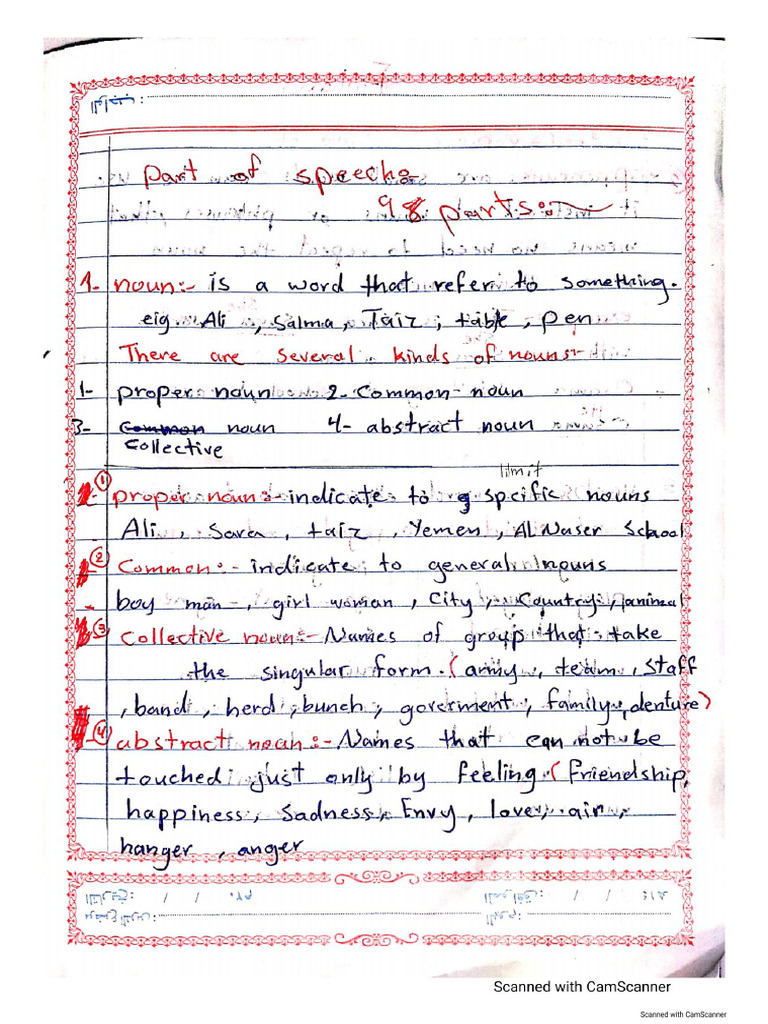 part of speech:-
9 parts:-
1- noun:- is a word that refer to something.
eig Ali , Salma, Taiz , table , pen
There are several kinds of nouns:-
1- proper noun 2- Common noun
3- Common noun 4- abstract noun
Collective
limit
① proper noun:- indicate to spcific nouns
Ali , Sara , taiz , Yemen , Al Naser School
② Common:- indicate to general nouns
- boy man , girl woman , City , Country , animal
③ Collective noun:- Names of group that take
the singular form. (army , team , staff
, band , herd , bunch , goverment , family , denture)
④ abstract noun:- Names that can not be
touched just only by feeling. (friendship,
happiness, Sadness, Envy , love, air ,
hanger , anger
Scanned with CamScanner
Scanned with CamScanner